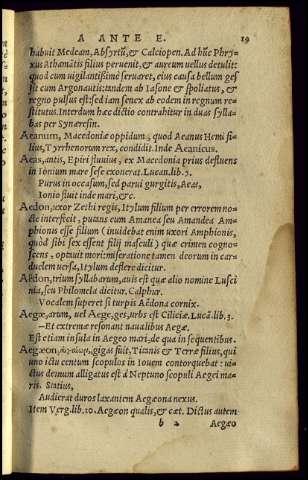 A ANTE E. 19
habuit Medeam, Absyrtũ, & Calciopen. Ad hũc Phry
xus Athamātis filius peruenit, & aureum vellus detulit:
quod cum uigilantissime seruaret, eius causa bellum ges
sit cum Argonautis: tandem ab Iasone & spoliatus, &
regno pulsus est: sed iam senex ab eodem in regnum re
stitutus. Interdum hæc dictio contrahitur in duas sylla
bas per Synæresin.
Aeanum, Macedoniæ oppidum, quod Aeanus Hemi fi
lius, Tyrrhenorum rex, condidit. Inde Aeanicus.
Aeas, antis, Epiri fluuius, ex Macedonia prius defluens
in Ionium mare sese exonerat. Lucan. lib. 3.
Purus in occasum, sed parui gurgitis, Aeas,
Ionio fluit inde mari, & c.
Aedon, uxor Zethi regis, Itylum filium per errorem no-
cte interfecit, putans eum Amanea seu Amandea Am
phionis esse filium (inuidebat enim uxori Amphionis,
quòd sibi sex essent filij masculi) quæ crimen cogno-
scens, optauit mori: miseratione tamen deorum in car-
duelem uersa, Itylum deflere dicitur.
Aedon, trium syllabarum, auis est quæ alio nomine Lusci
nia, seu Philomela dicitur. Calphur.
Vocalem superet si turpis Aëdona cornix.
Aegæ, arum, vel Aege, ges, urbs est Ciliciæ. Lucā. lib. 3.
—Et extremæ resonant naualibus Aegæ.
Est etiam insula in Aegeo mari, de qua in sequentibus.
Aegæon, gigas fuit, Titanis & Terræ filius, qui
uno ictu centum scopulos in Iouem contorquebat: ui-
ctus demum alligatus est à Neptuno scopuli Aegei ma-
ris. Statius,
Audierat duros laxantem Aegæona nexus.
Item Verg. lib. 10. Aegæon qualis, & cæt. Dictus autem
b 2 Aegæo